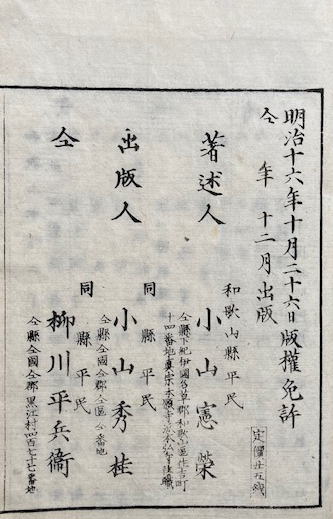 明治十六年十月二十六日版權免許
仝　年　十二月出版
定價廿五錢
著述人
和歌山縣平民
小山憲榮
仝縣下紀伊國名草郡和歌山區住吉町
十四番地真宗本願寺派本弘寺住職
出版人
同縣平民
小山秀桂
仝縣仝國仝郡仝區仝番地
仝
同縣平民
柳川平兵衛
仝縣仝國仝郡黒江村四百七十七番地